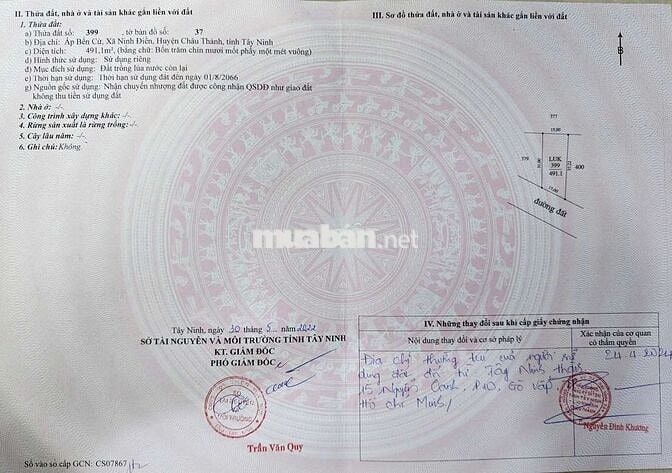 II. Thửa đất, nhà ở và tài sản khác gắn liền với đất
1. Thửa đất:
a) Thửa đất số: 399 tờ bản đồ số: 37
b) Địa chỉ: Ấp Bến Cừ, Xã Ninh Điền, Huyện Châu Thành, tỉnh Tây Ninh
c) Diện tích: 491,1m², (bằng chữ: Bốn trăm chín mươi mốt phẩy một mét vuông)
d) Hình thức sử dụng: Sử dụng riêng
đ) Mục đích sử dụng: Đất trồng lúa nước còn lại
e) Thời hạn sử dụng: Thời hạn sử dụng đất đến ngày 01/8/2066
g) Nguồn gốc sử dụng: Nhận chuyển nhượng đất được công nhận QSDĐ như giao đất
không thu tiền sử dụng đất
2. Nhà ở: -/-
3. Công trình xây dựng khác: -/-
4. Rừng sản xuất là rừng trồng: -/-
5. Cây lâu năm: -/-
6. Ghi chú: Không.
Tây Ninh, ngày 30 tháng 5 năm 2022
SỞ TÀI NGUYÊN VÀ MÔI TRƯỜNG TỈNH TÂY NINH
KT. GIÁM ĐỐC
PHÓ GIÁM ĐỐC
Trần Văn Quý
Số vào sổ cấp GCN: CS07867
muaban.net
III. Sơ đồ thửa đất, nhà ở và tài sản khác gắn liền với đất
B
377
15,00
LUK
399
491.1
379
400
17,00
đường đất
IV. Những thay đổi sau khi cấp giấy chứng nhận
Nội dung thay đổi và cơ sở pháp lý
Xác nhận của cơ quan
có thẩm quyền
Địa chỉ thường trú của người sử
dụng đất từ Tây Ninh thành
15 Nguyễn Oanh, P10, Gò Vấp, TP
Hồ Chí Minh/
Nguyễn Đình Khương